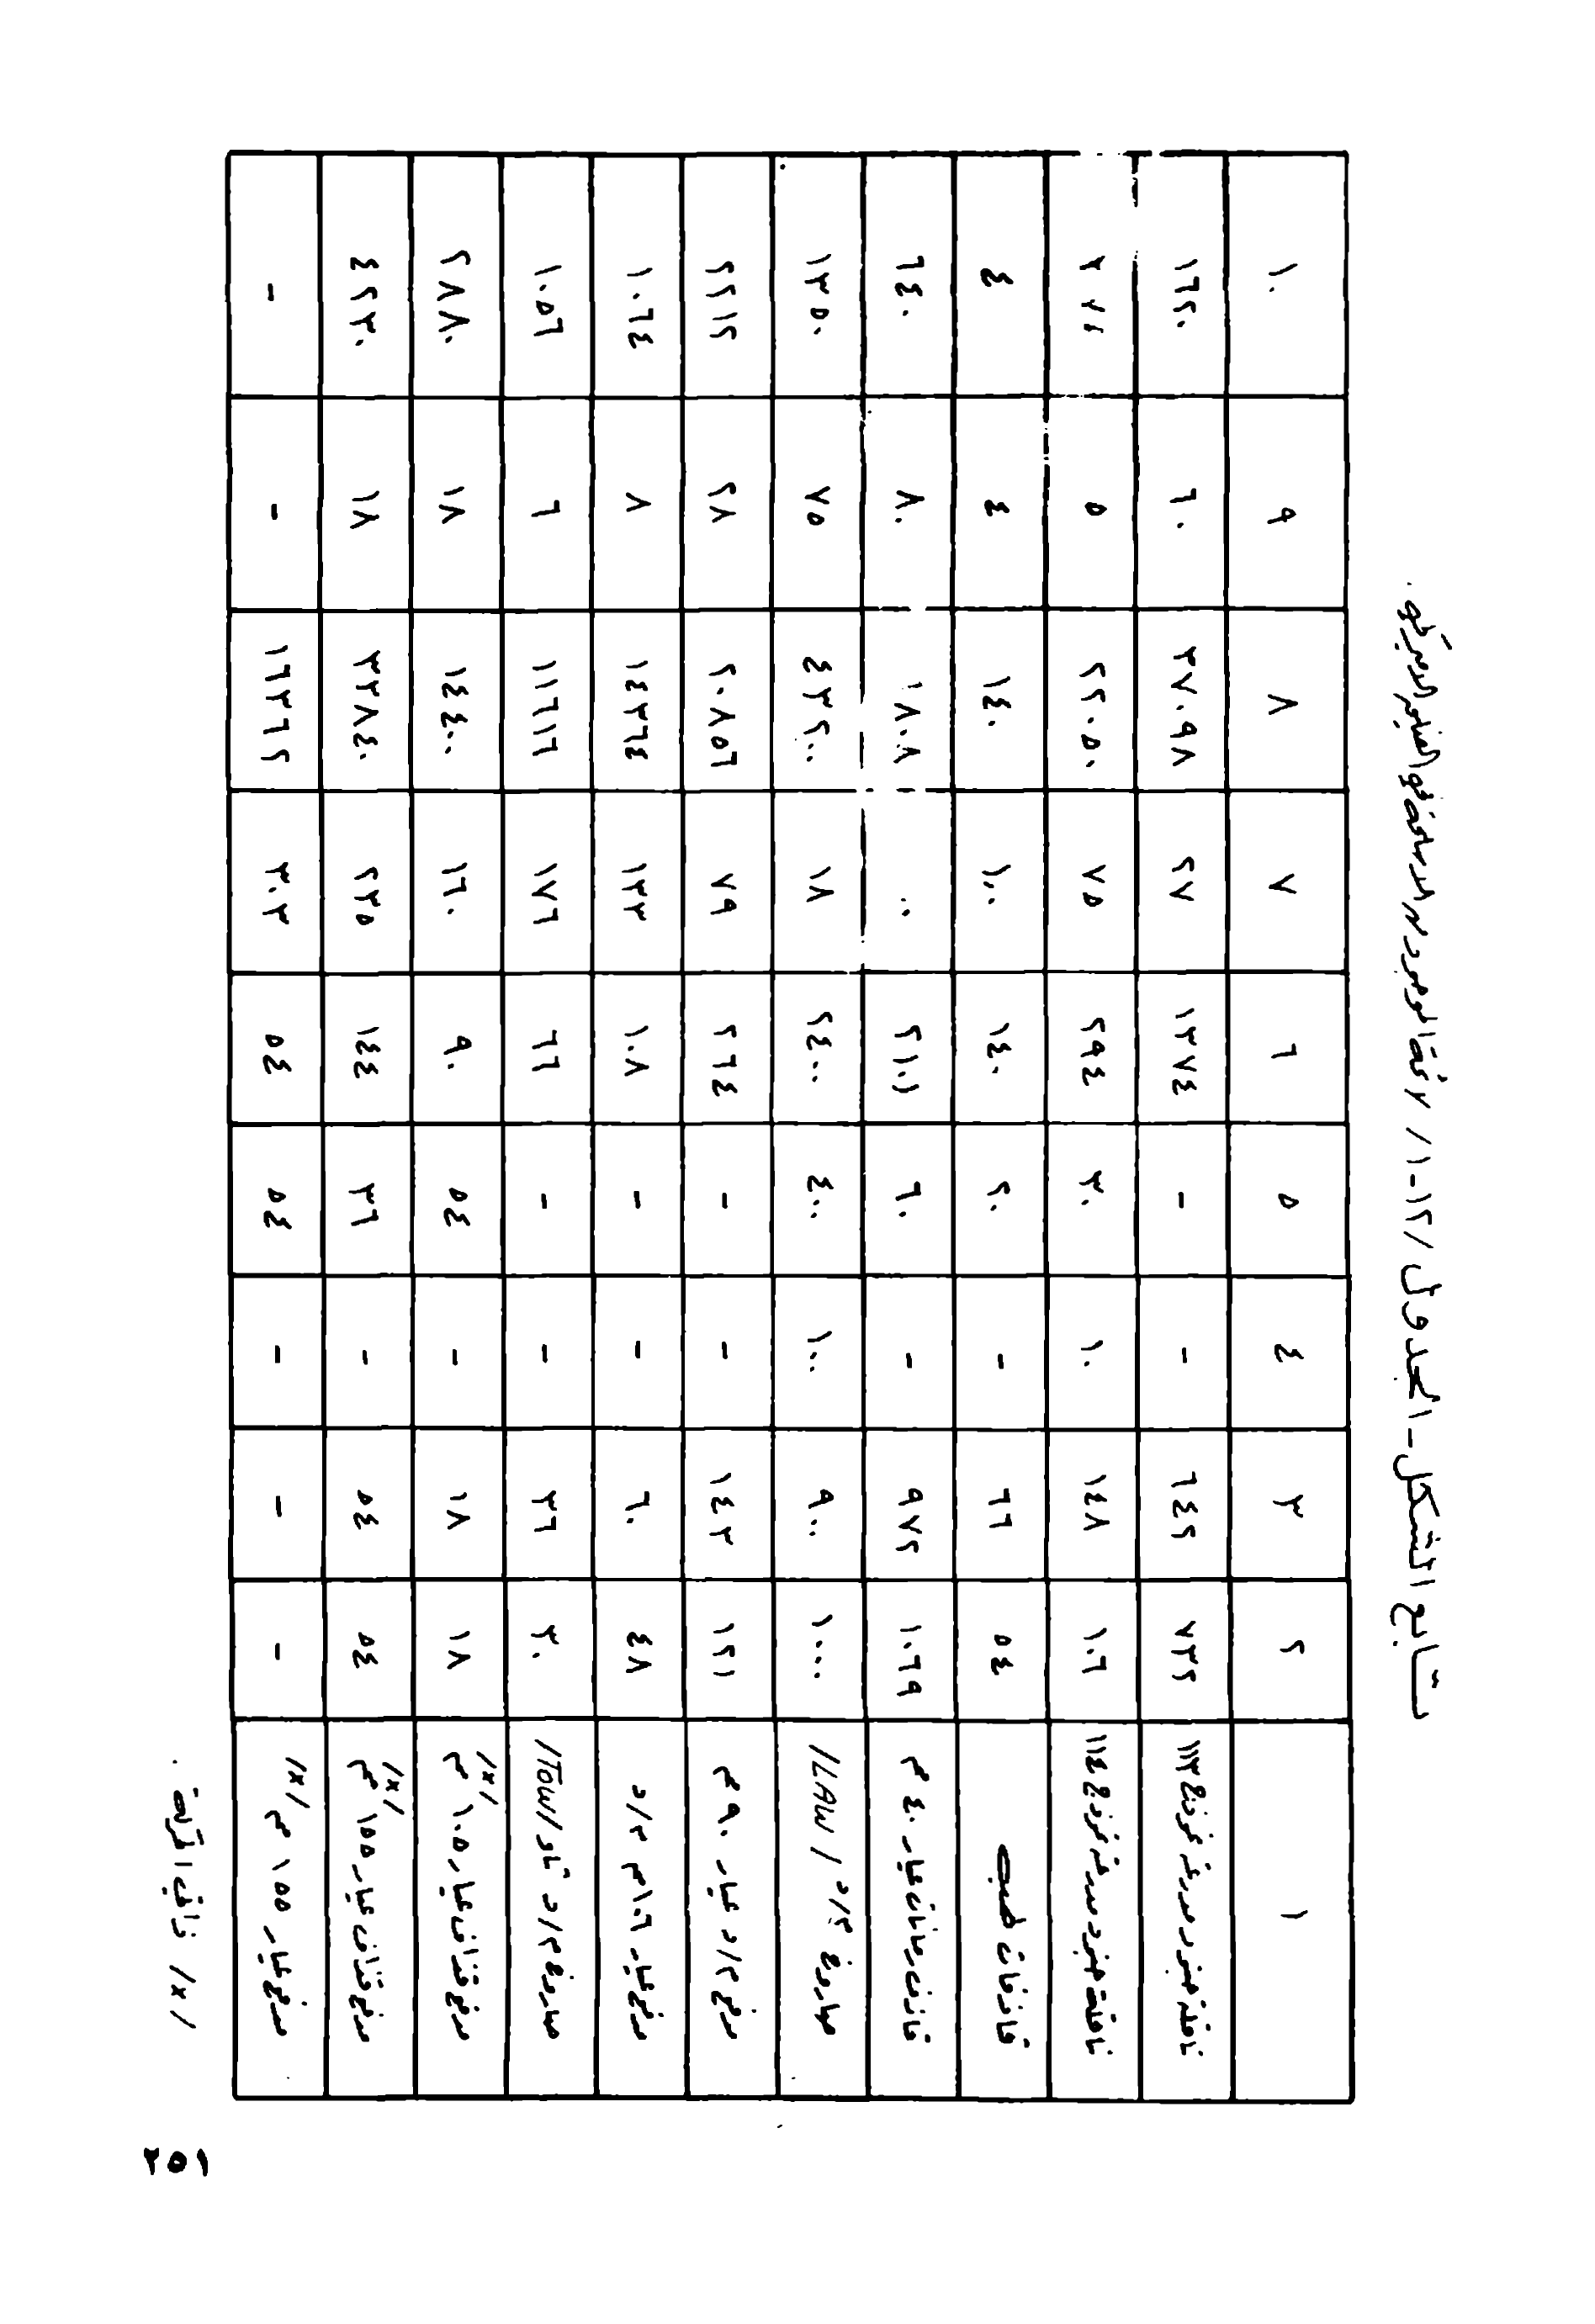 تابع الشكل - الجدول /١٢-١/
١ ٢ ٣ ٤ ٥ ٦ ٧ ٨ ٩ ١٠
ناقلة جنود مدرعة نموذج ١١٣ ٧٣٢ ٦٤٢ - - ١٣٧٤ ٢٧ ٣٧٠٩٨ ٦٠ ١٦٢٠
ناقلة جنود مدرعة نموذج ١١٤ ١٠٦ ١٤٨ ١٠ ٣٠ ٢٩٤ ٧٥ ٢٢٠٥٠ ٥
قاذفات لهب ٥٤ ٦٦ - ٢٠ ١٤٠ ١٠٠ ١٤٠ ٤ ٤
قاذف رمانات عيار ٤٠ م ١٠٦٩ ٩٧٢ - ٦٠ ٢١٠١ ١٨٠٨ ٨٠ ٦٤٠
صاروخ م/د /LAW/ ١٠٠٠ ٩٠٠ ١٠٠ ٤٠٠ ٢٤٠٠ ١٨ ٤٣٢٠٠ ٧٥ ١٣٥٠
مدفع م/د عيار ٩٠ م ١٢١ ١٤٣ - - ٢٦٤ ٧٩ ٢٠٨٥٦ ٢٨ ٢٢١٢
مدفع عيار ١٠٦ م م/د ٤٨ ٦٠ - - ١٠٨ ١٣٣ ١٤٣٦٤ ٨ ١٠٦٤
صاروخ م/د تاو /TOW/ ٣٠ ٣٦ - - ٦٦ ١٧٦ ١١٦١٦ ٦ ١٠٥٦
مدفع قذاف عيار ١٠٥ م /x/ ١٨ ١٨ - ٥٤ ٩٠ ١٦٠ ١٤٤٠٠ ١٨ ٢٨٨٠
مدفع قذاف عيار ١٥٥ م /x/ ٥٤ ٥٤ - ٣٦ ١٤٤ ٢٣٥ ٣٣٨٤٠ ١٨ ٤٢٣٠
مدفع عيار ١٥٥ م /x/ - - - ٥٤ ٥٤ ٣٠٣ ١٦٣٦٢ - -
/x/ ذاتي الحركة .
٢٥١